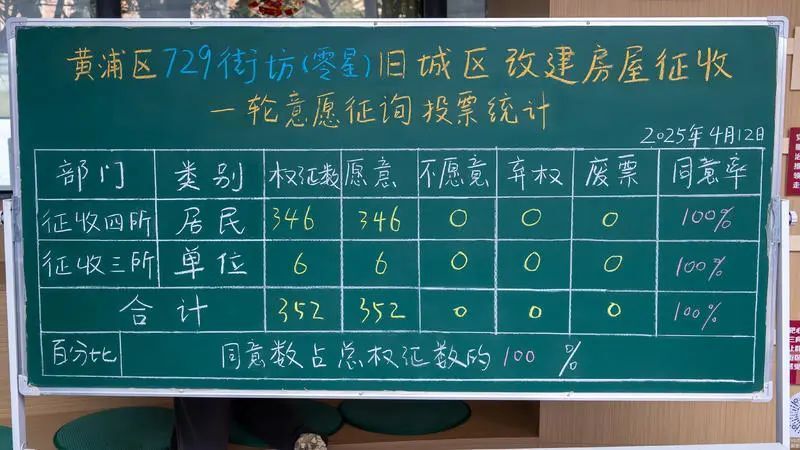 黄浦区729街坊(零星)旧城区改建房屋征收
一轮意愿征询投票统计
2025年4月12日
部门 类别 权证数 愿意 不愿意 弃权 废票 同意率
征收四所 居民 346 346 0 0 0 100%
征收三所 单位 6 6 0 0 0 100%
合计 352 352 0 0 0 100%
百分比 同意数占总权证数的100 %